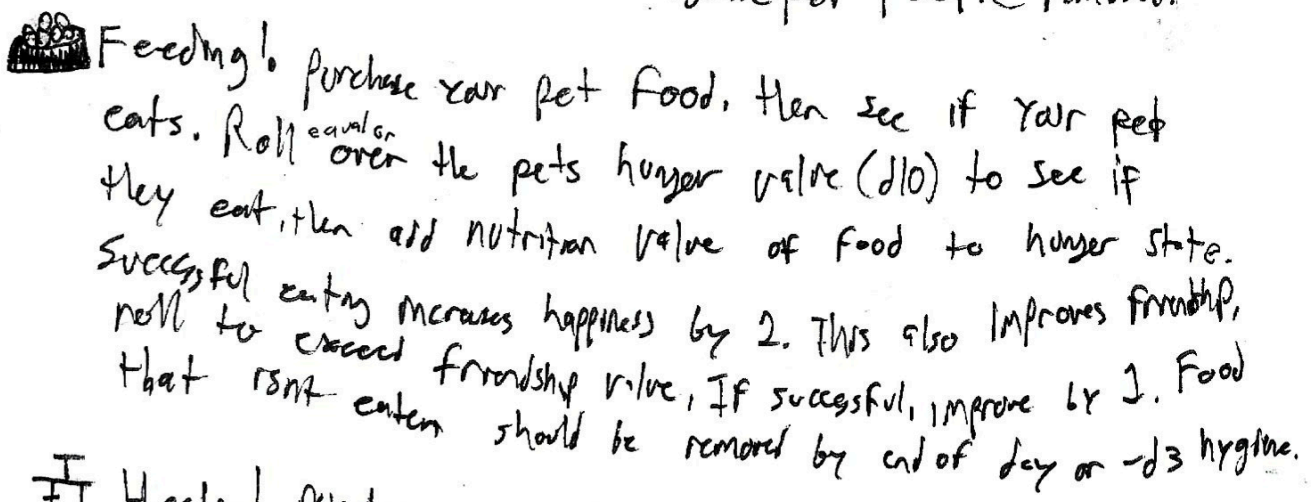 Feeding! Purchase your pet food, then see if your pet
eats. Roll equal or over the pets hunger value (d10) to see if
they eat, then add nutrition value of food to hunger state.
Successful eating increases happiness by 2. This also improves friendship,
roll to exceed friendship value, If successful, improve by 1. Food
that isnt eaten should be removed by end of day or -d3 hygine.